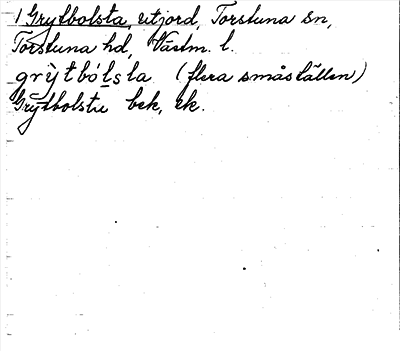 1 Grytbolsta, utjord, Torstuna sn,
Torstuna hd, Västm. l.
grỳtbólsta (flera småställen)
Grytbolsta bek, ek.